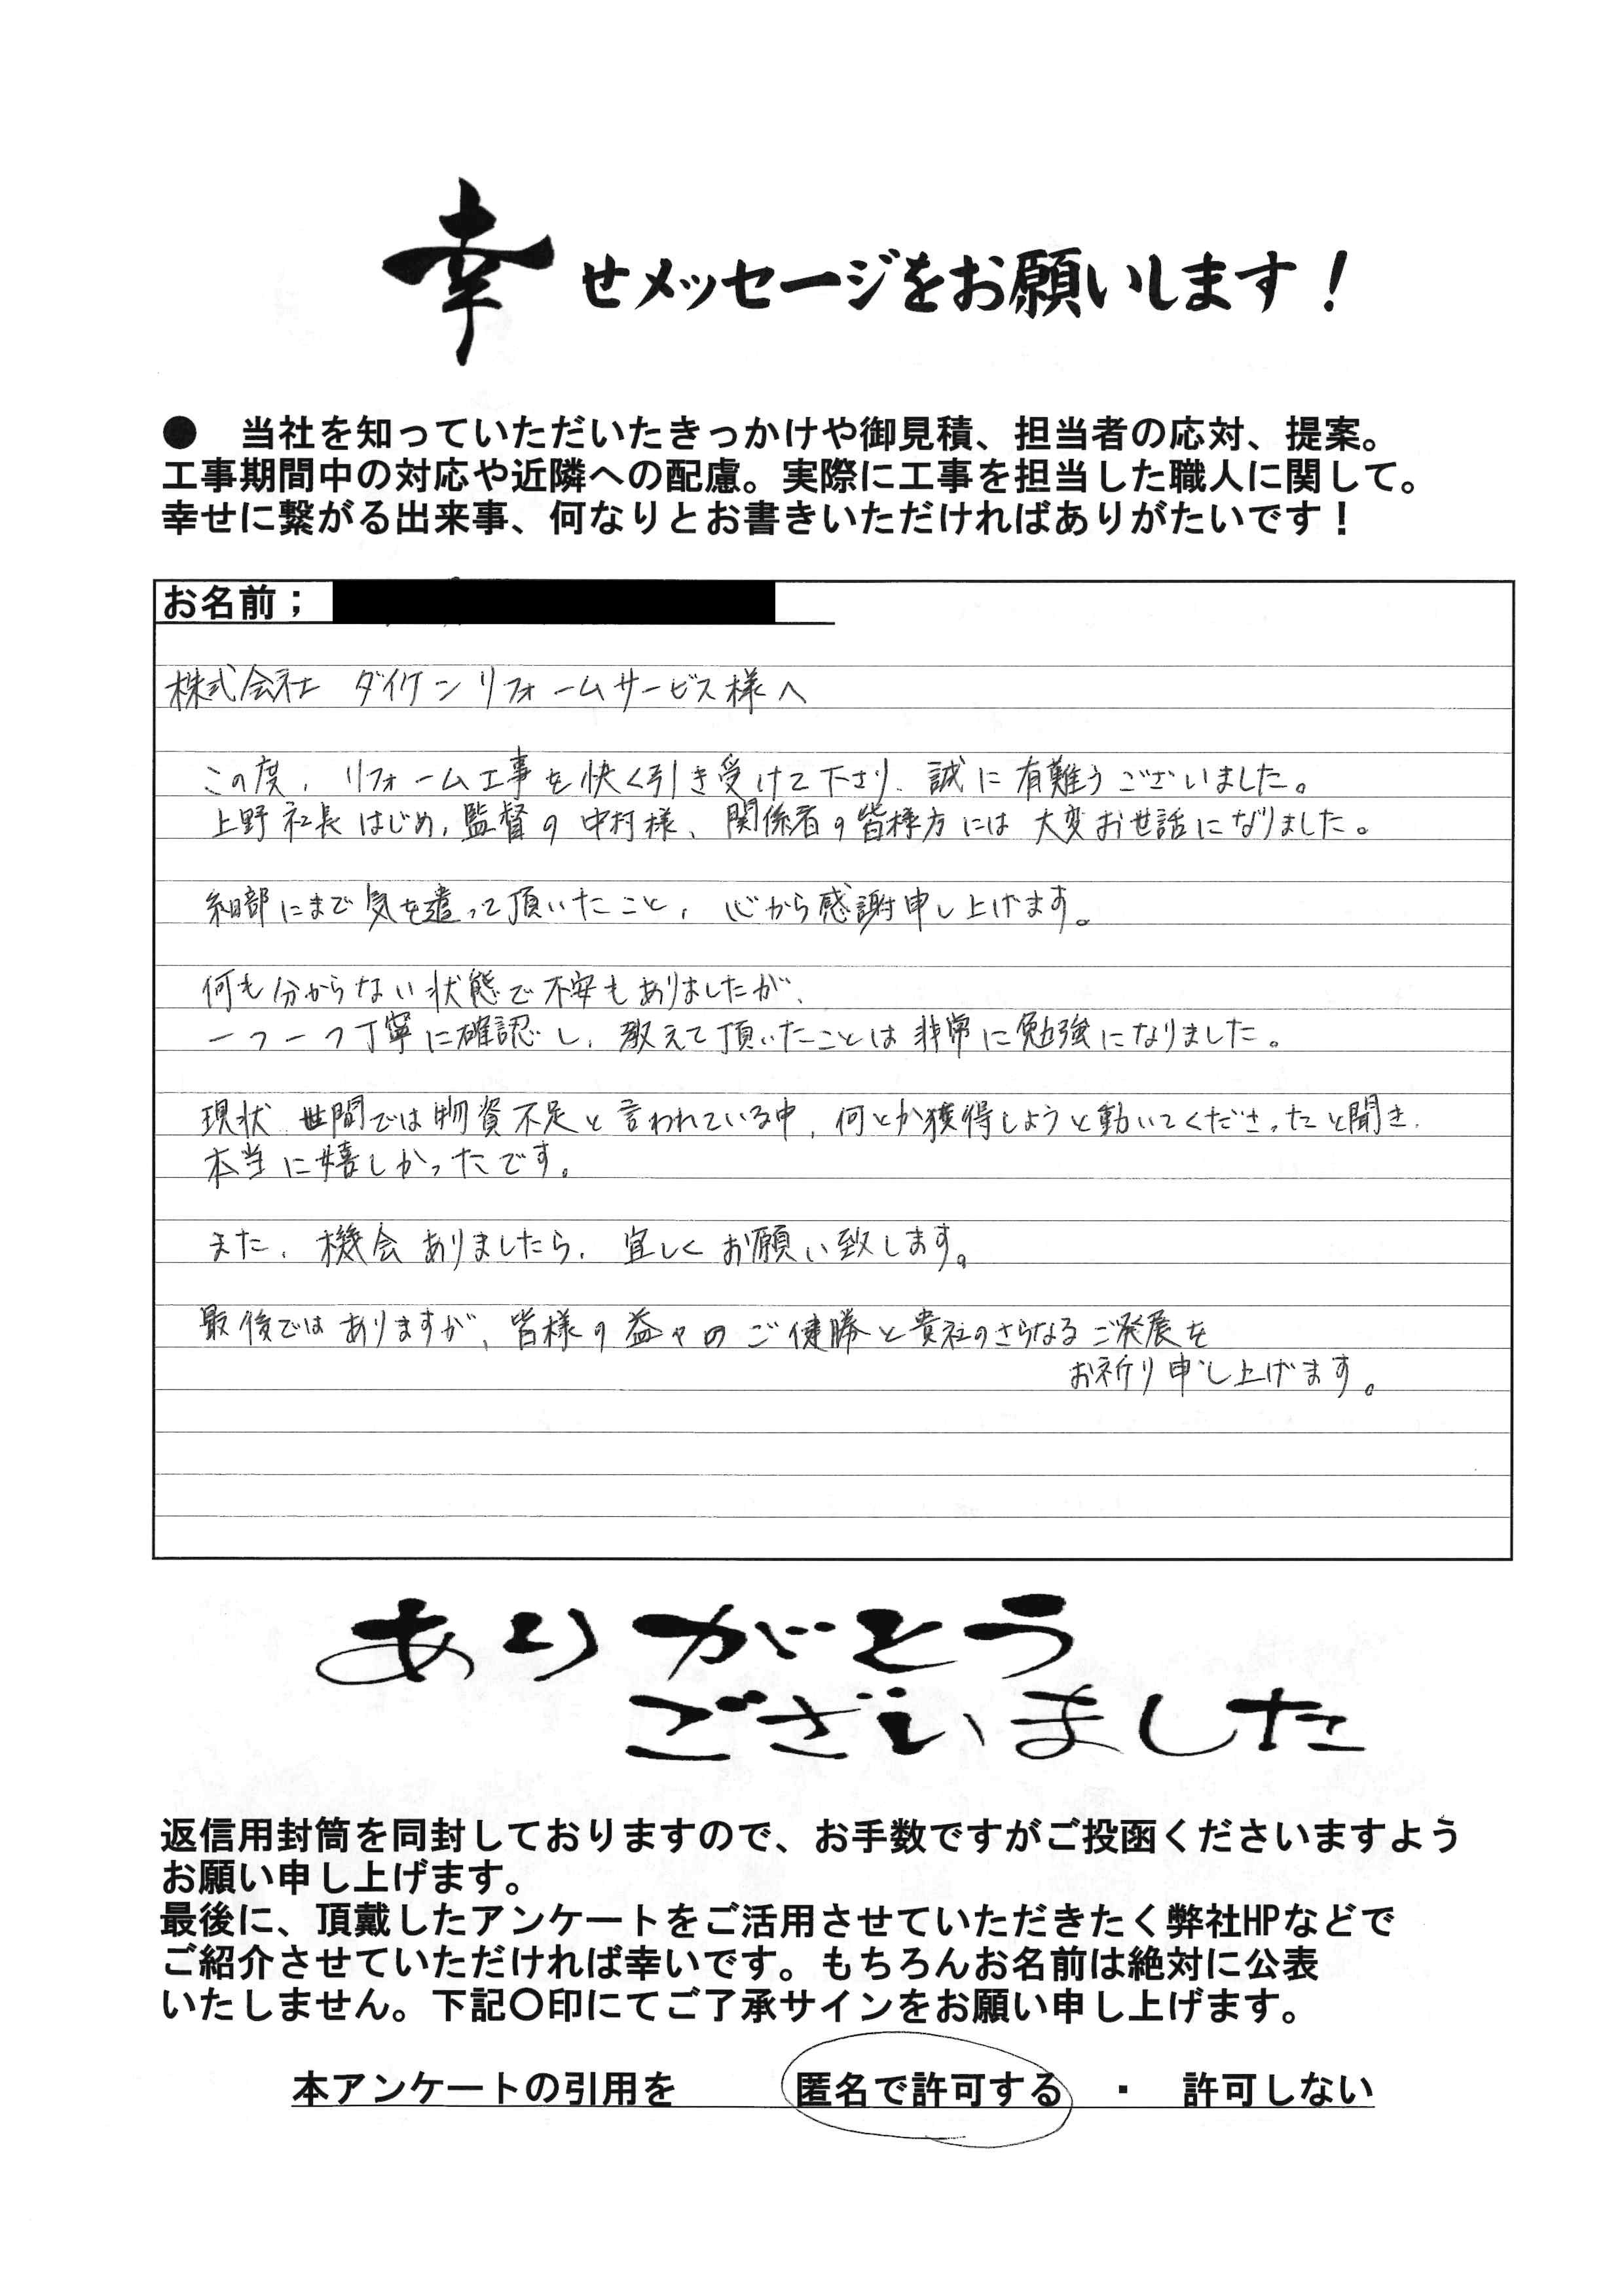 幸せメッセージをお願いします！
●　当社を知っていただいたきっかけや御見積、担当者の応対、提案。
工事期間中の対応や近隣への配慮。実際に工事を担当した職人に関して。
幸せに繋がる出来事、何なりとお書きいただければありがたいです！
お名前；
株式会社　ダイケンリフォームサービス様へ
この度、リフォーム工事を快く引き受けて下さり、誠に有難うございました。
上野社長はじめ、監督の中村様、関係者の皆様方には大変お世話になりました。
細部にまで気を遣って頂いたこと、心から感謝申し上げます。
何も分からない状態で不安もありましたが、
一つ一つ丁寧に確認し、教えて頂いたことは非常に勉強になりました。
現状、世間では物資不足と言われている中、何とか獲得しようと動いてくださったと聞き、
本当に嬉しかったです。
また、機会ありましたら、宜しくお願い致します。
最後ではありますが、皆様の益々のご健勝と貴社のさらなるご発展を
お祈り申し上げます。
ありがとう
ございました
返信用封筒を同封しておりますので、お手数ですがご投函くださいますよう
お願い申し上げます。
最後に、頂戴したアンケートをご活用させていただきたく弊社HPなどで
ご紹介させていただければ幸いです。もちろんお名前は絶対に公表
いたしません。下記〇印にてご了承サインをお願い申し上げます。
本アンケートの引用を　匿名で許可する　・　許可しない